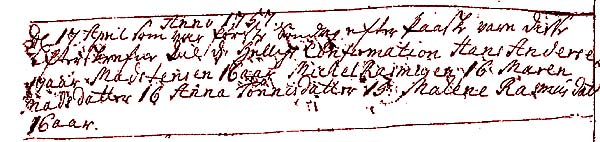 Anno 1757
d. 17 April som var første Søndag efter Paaske vare disse
efterskrefne til d. hellige Confirmation Hans Anderse
16aar Madstensen 16aar Michel Rasmusen 16. Maren
Madsdatter 16 Anna Tonnisdatter 19. Malene Rasmusdat
16aar.